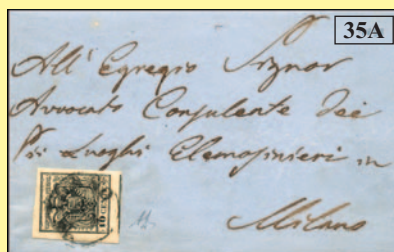 35A
All' Egregio Signor
Avvocato Consulente dei
Pii Luoghi Elemosinieri in
Milano
10 CENT